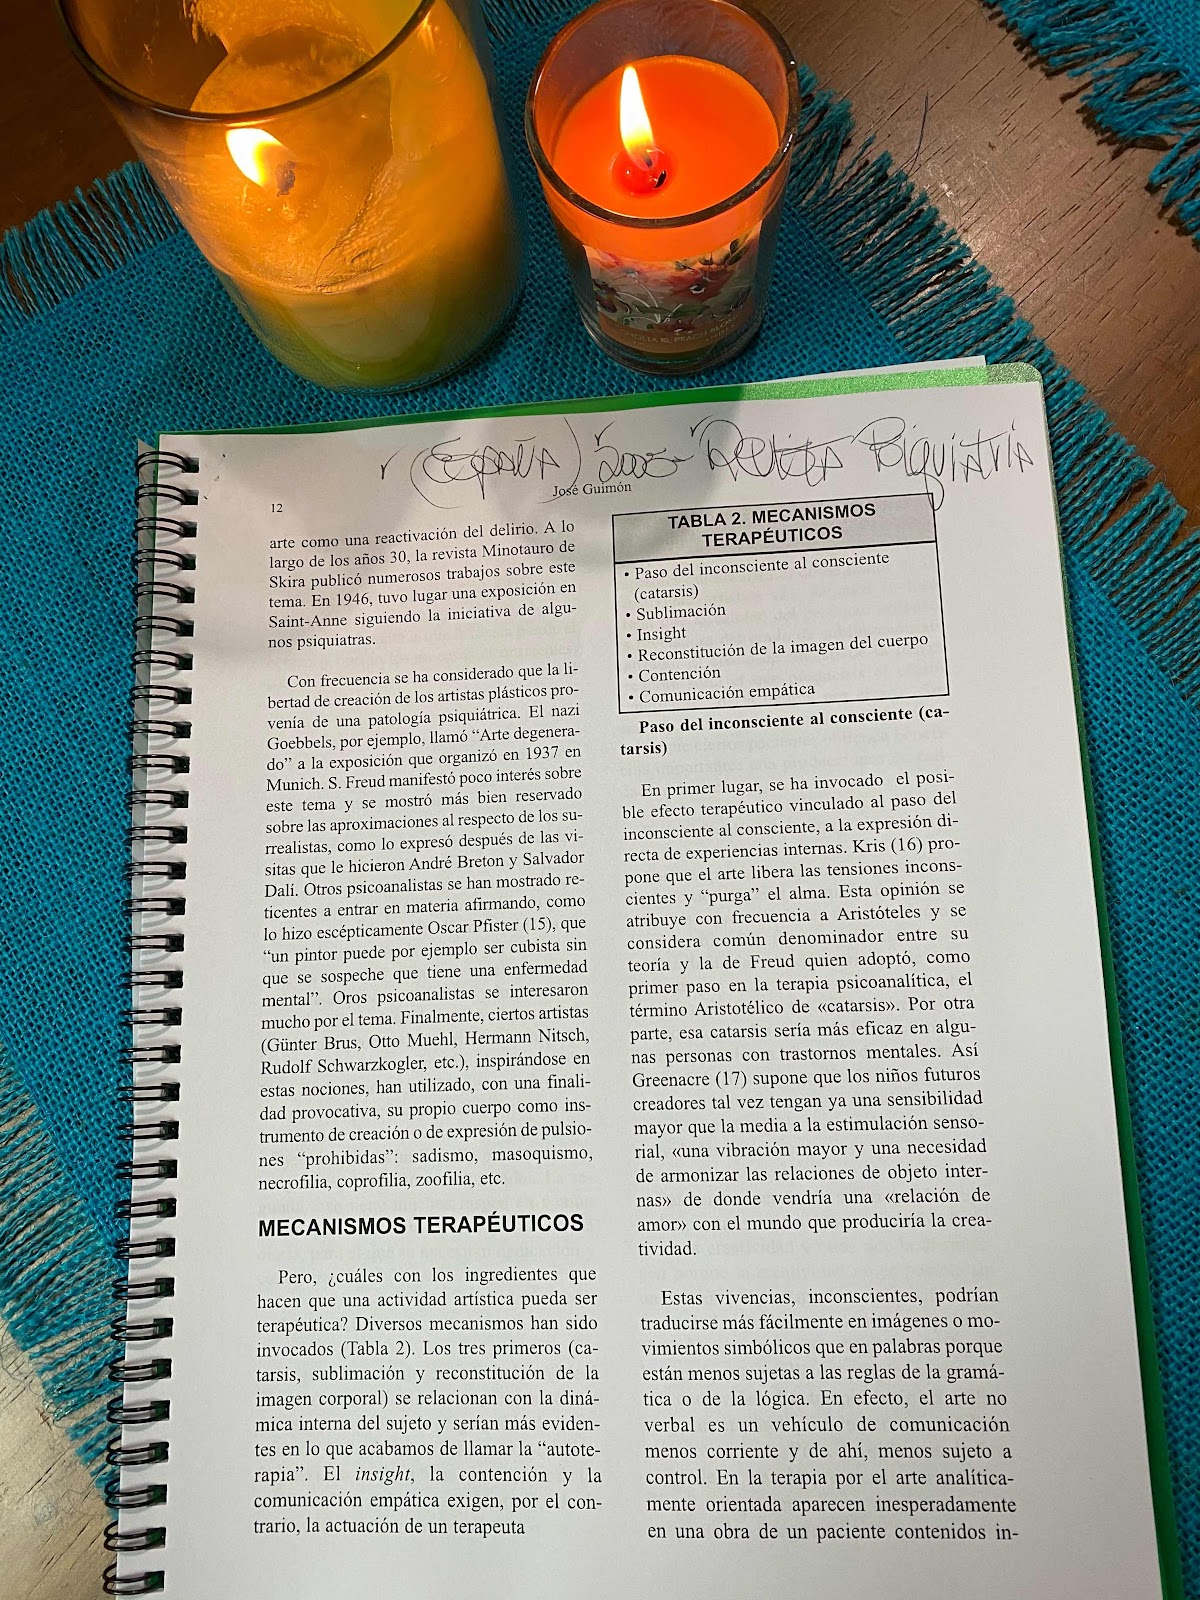 (ESPAÑA) 2005- Revista Psiquiatria
12
José Guimón
arte como una reactivación del delirio. A lo
largo de los años 30, la revista Minotauro de
Skira publicó numerosos trabajos sobre este
tema. En 1946, tuvo lugar una exposición en
Saint-Anne siguiendo la iniciativa de algu-
nos psiquiatras.
Con frecuencia se ha considerado que la li-
bertad de creación de los artistas plásticos pro-
venía de una patología psiquiátrica. El nazi
Goebbels, por ejemplo, llamó “Arte degenera-
do” a la exposición que organizó en 1937 en
Munich. S. Freud manifestó poco interés sobre
este tema y se mostró más bien reservado
sobre las aproximaciones al respecto de los su-
rrealistas, como lo expresó después de las vi-
sitas que le hicieron André Breton y Salvador
Dalí. Otros psicoanalistas se han mostrado re-
ticentes a entrar en materia afirmando, como
lo hizo escépticamente Oscar Pfister (15), que
“un pintor puede por ejemplo ser cubista sin
que se sospeche que tiene una enfermedad
mental”. Oros psicoanalistas se interesaron
mucho por el tema. Finalmente, ciertos artistas
(Günter Brus, Otto Muehl, Hermann Nitsch,
Rudolf Schwarzkogler, etc.), inspirándose en
estas nociones, han utilizado, con una finali-
dad provocativa, su propio cuerpo como ins-
trumento de creación o de expresión de pulsio-
nes “prohibidas”: sadismo, masoquismo,
necrofilia, coprofilia, zoofilia, etc.
MECANISMOS TERAPÉUTICOS
Pero, ¿cuáles con los ingredientes que
hacen que una actividad artística pueda ser
terapéutica? Diversos mecanismos han sido
invocados (Tabla 2). Los tres primeros (ca-
tarsis, sublimación y reconstitución de la
imagen corporal) se relacionan con la diná-
mica interna del sujeto y serían más eviden-
tes en lo que acabamos de llamar la “autote-
rapia”. El insight, la contención y la
comunicación empática exigen, por el con-
trario, la actuación de un terapeuta
TABLA 2. MECANISMOS
TERAPÉUTICOS
• Paso del inconsciente al consciente
(catarsis)
• Sublimación
• Insight
• Reconstitución de la imagen del cuerpo
• Contención
• Comunicación empática
Paso del inconsciente al consciente (ca-
tarsis)
En primer lugar, se ha invocado el posi-
ble efecto terapéutico vinculado al paso del
inconsciente al consciente, a la expresión di-
recta de experiencias internas. Kris (16) pro-
pone que el arte libera las tensiones incons-
cientes y “purga” el alma. Esta opinión se
atribuye con frecuencia a Aristóteles y se
considera común denominador entre su
teoría y la de Freud quien adoptó, como
primer paso en la terapia psicoanalítica, el
término Aristotélico de «catarsis». Por otra
parte, esa catarsis sería más eficaz en algu-
nas personas con trastornos mentales. Así
Greenacre (17) supone que los niños futuros
creadores tal vez tengan ya una sensibilidad
mayor que la media a la estimulación senso-
rial, «una vibración mayor y una necesidad
de armonizar las relaciones de objeto inter-
nas» de donde vendría una «relación de
amor» con el mundo que produciría la crea-
tividad.
Estas vivencias, inconscientes, podrían
traducirse más fácilmente en imágenes o mo-
vimientos simbólicos que en palabras porque
están menos sujetas a las reglas de la gramá-
tica o de la lógica. En efecto, el arte no
verbal es un vehículo de comunicación
menos corriente y de ahí, menos sujeto a
control. En la terapia por el arte analítica-
mente orientada aparecen inesperadamente
en una obra de un paciente contenidos in-